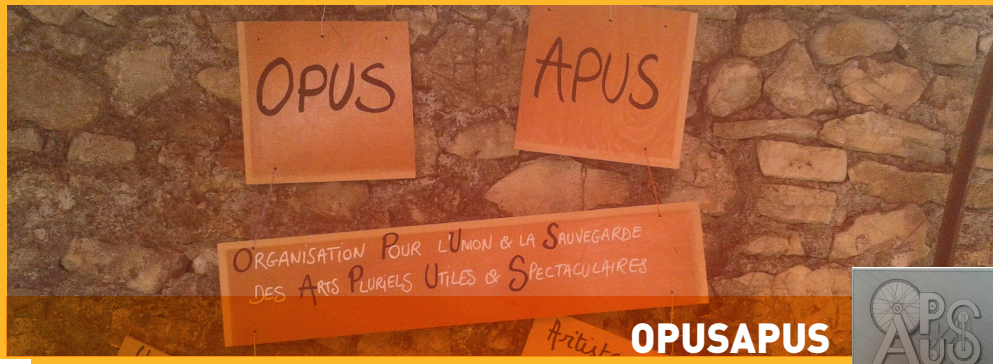 OPUS
APUS
ORGANISATION POUR L'UNION & LA SAUVEGARDE
DES ARTS PLURIELS UTILES & SPECTACULAIRES
OPUSAPUS